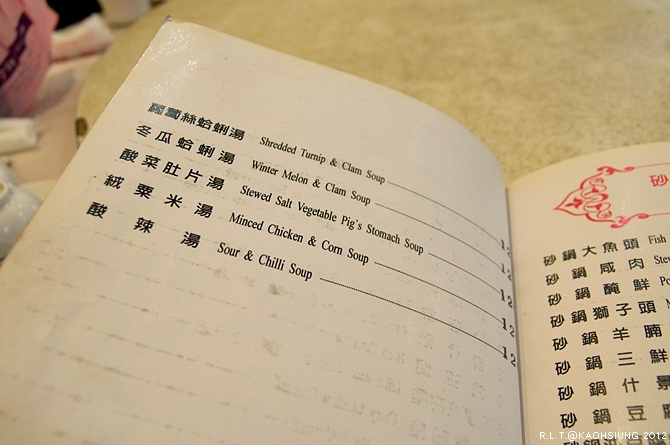 蘿蔔絲蛤蜊湯 Shredded Turnip & Clam Soup 12
冬瓜蛤蜊湯 Winter Melon & Clam Soup 12
酸菜肚片湯 Stewed Salt Vegetable Pig's Stomach Soup 12
絨粟米湯 Minced Chicken & Corn Soup 12
酸辣湯 Sour & Chilli Soup 12
砂
砂鍋大魚頭 Fish
砂鍋咸肉 Stew
砂鍋醃鮮 Po
砂鍋獅子頭
砂鍋羊腩
砂鍋三鮮
砂鍋什景
砂鍋豆腐
R.L.T.@KAOHSIUNG 2012